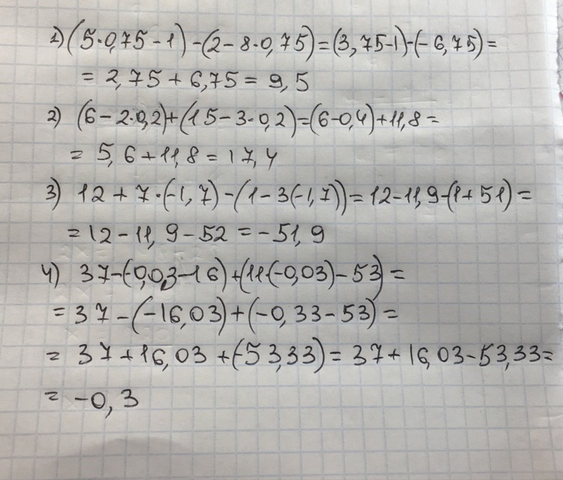 1) (5·0,75-1)-(2-8·0,75)=(3,75-1)-(-6,75)=
=2,75+6,75=9,5
2) (6-2·0,2)+(15-3·0,2)=(6-0,4)+11,8=
=5,6+11,8=17,4
3) 12+7·(-1,7)-(1-3(-1,7))=12-11,9-(1+51)=
=12-11,9-52=-51,9
4) 37-(0,03-16)+(11(-0,03)-53)=
=37-(-16,03)+(-0,33-53)=
=37+16,03+(-53,33)=37+16,03-53,33=
=-0,3